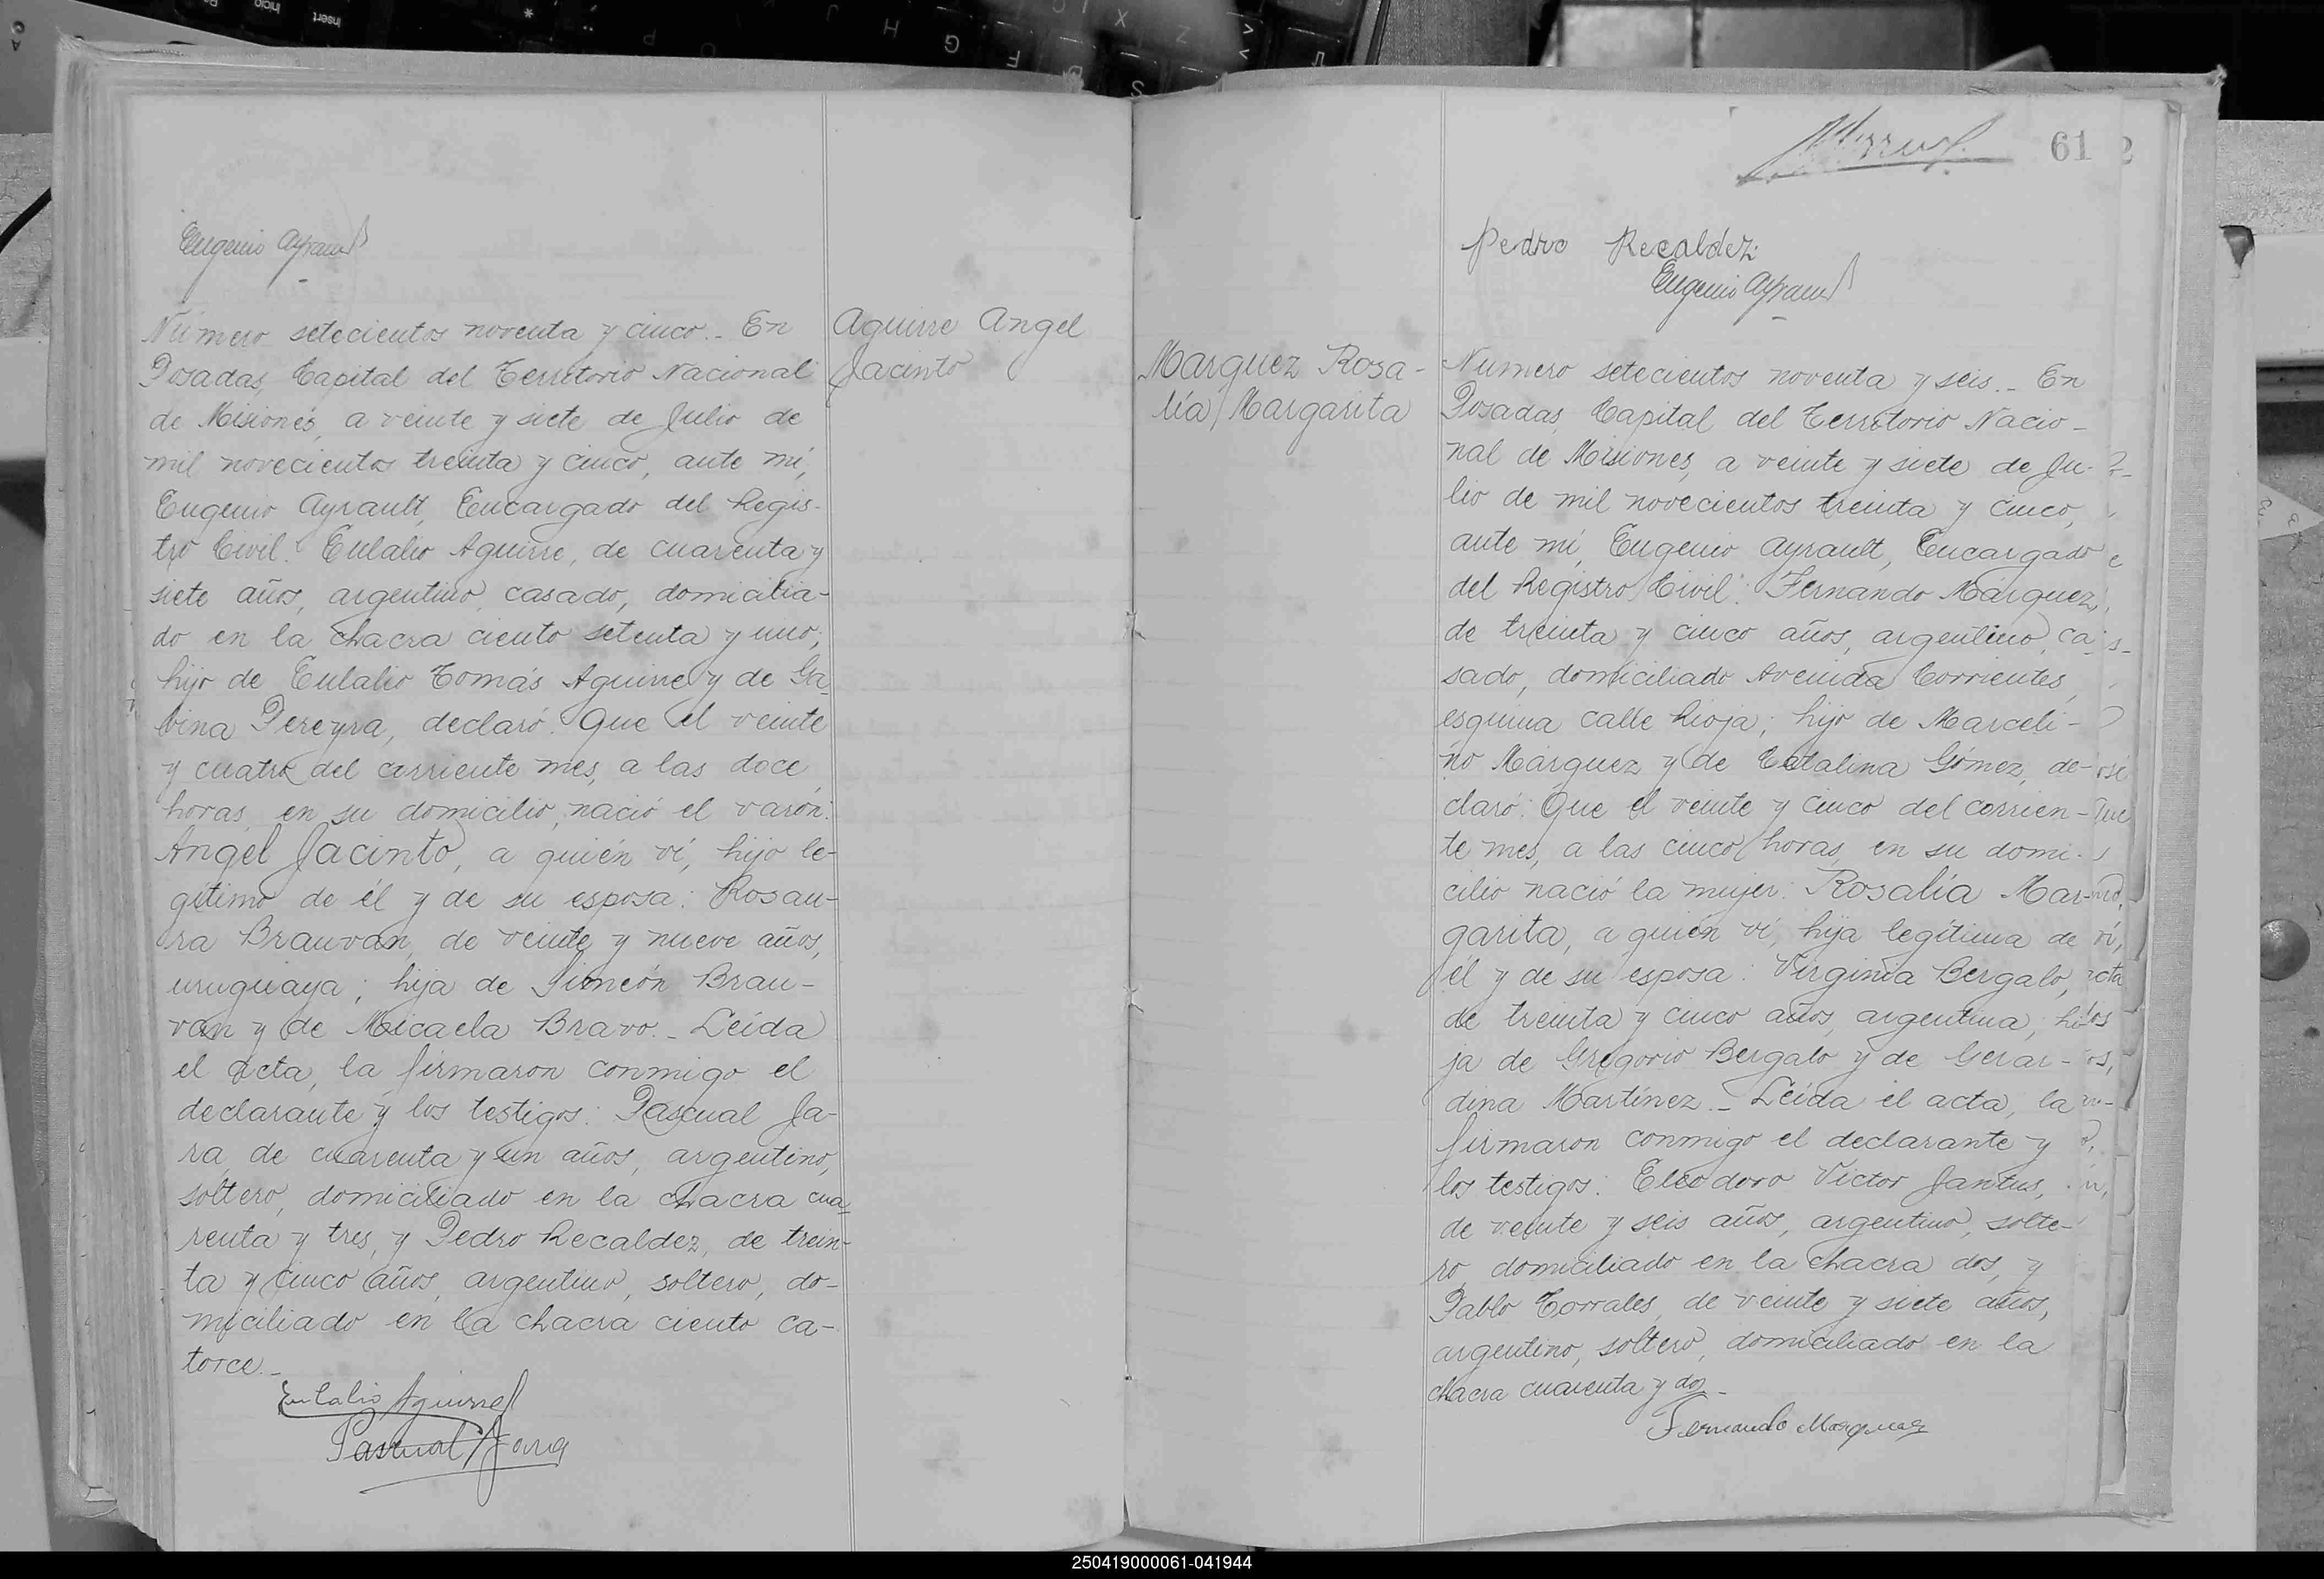 Eugenio Ayrault
Número setecientos noventa y cinco.- En
Posadas, Capital del Territorio Nacional
de Misiones, a veinte y siete de Julio de
mil novecientos treinta y cinco, ante mí,
Eugenio Ayrault, Encargado del Regis-
tro Civil: Eulalio Aguirre, de cuarenta y
siete años, argentino, casado, domicilia-
do en la chacra ciento setenta y uno;
hijo de Eulalio Tomás Aguirre y de Ga-
bina Pereyra, declaró: Que el veinte
y cuatro del corriente mes, a las doce
horas, en su domicilio, nació el varón:
Angel Jacinto, a quién ví, hijo le-
gítimo de él y de su esposa: Rosau-
ra Brauvan, de veinte y nueve años,
uruguaya; hija de Simeón Brau-
van y de Micaela Bravo.- Leída
el acta, la firmaron conmigo el
declarante y los testigos: Pascual Ja-
ra, de cuarenta y un años, argentino,
soltero, domiciliado en la chacra cua-
renta y tres, y Pedro Recaldez, de trein-
ta y cinco años, argentino, soltero, do-
miciliado en la chacra ciento ca-
torce.-
Eulalio Aguirre
Pascual Jara
Aguirre Angel
Jacinto
61
Pedro Recaldez
Eugenio Ayrault
Marquez Rosa-
lía Margarita
Numero setecientos noventa y seis.- En
Posadas, Capital del Territorio Nacio-
nal de Misiones, a veinte y siete de Ju-
lio de mil novecientos treinta y cinco,
ante mí, Eugenio Ayrault, Encargado
del Registro Civil: Fernando Márquez,
de treinta y cinco años, argentino, ca-
sado, domiciliado Avenida Corrientes,
esquina calle Rioja; hijo de Marceli-
no Márquez y de Catalina Gómez, de-
claró: Que el veinte y cinco del corrien-
te mes, a las cinco horas, en su domi-
cilio nació la mujer: Rosalía Mar-
garita, a quién ví, hija legítima de
él y de su esposa: Virginia Bergalo,
de treinta y cinco años, argentina; hi-
ja de Gregorio Bergalo y de Gerar-
dina Martínez.- Leída el acta, la
firmaron conmigo el declarante y
los testigos: Eleodoro Victor Jantus,
de veinte y seis años, argentino, solte-
ro, domiciliado en la chacra dos, y
Pablo Corrales, de veinte y siete años,
argentino, soltero, domiciliado en la
chacra cuarenta y dos.-
Fernando Marquez
250419000061-041944